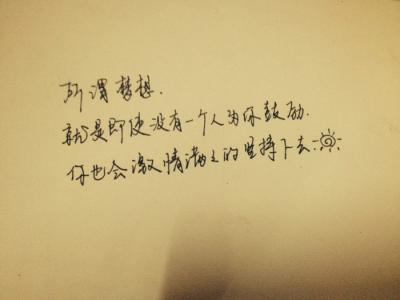 所谓梦想.
就是即使没有一个人为你鼓励.
你也会激情满满的坚持下去.